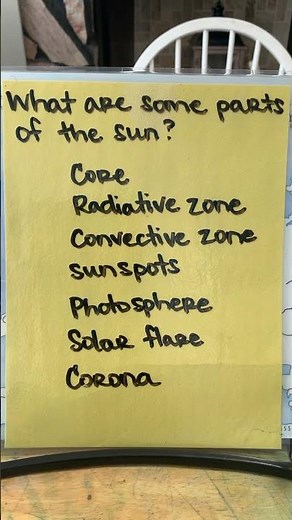 What are some parts
of the sun?
Core
Radiative zone
Convective zone
sunspots
Photosphere
Solar flare
Corona